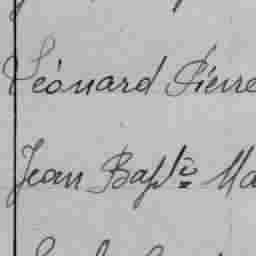 Léonard Pierre
Jean Bapte Ma